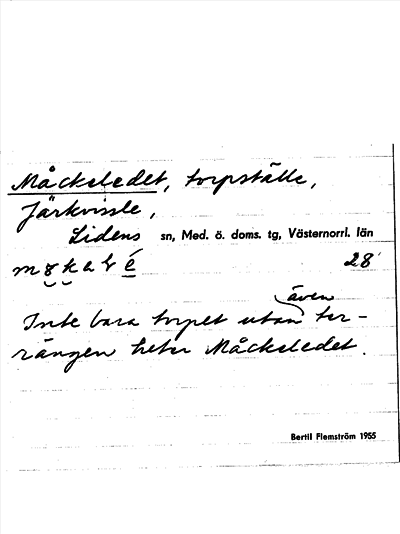 Måckeledet, torpställe,
Järkvissle,
Lidens sn, Med. ö. doms. tg, Västernorrl. län
28
även
Inte bara torpet utan ter-
rängen heter Måckeledet.
Bertil Flemström 1955